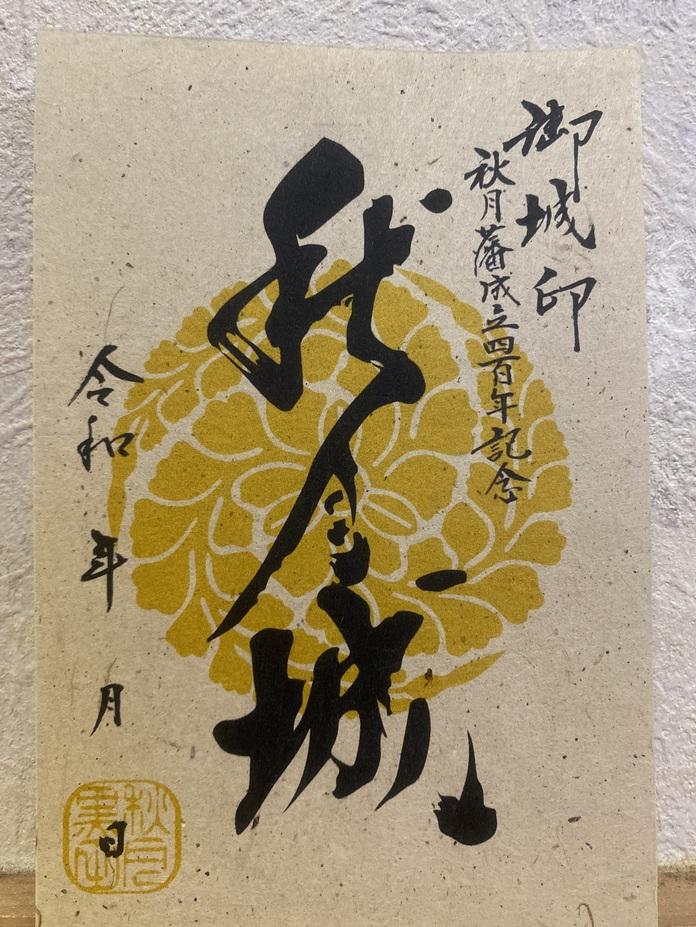 御城印
秋月藩成立四百年記念
秋月城
令和　年　月　日
秋月